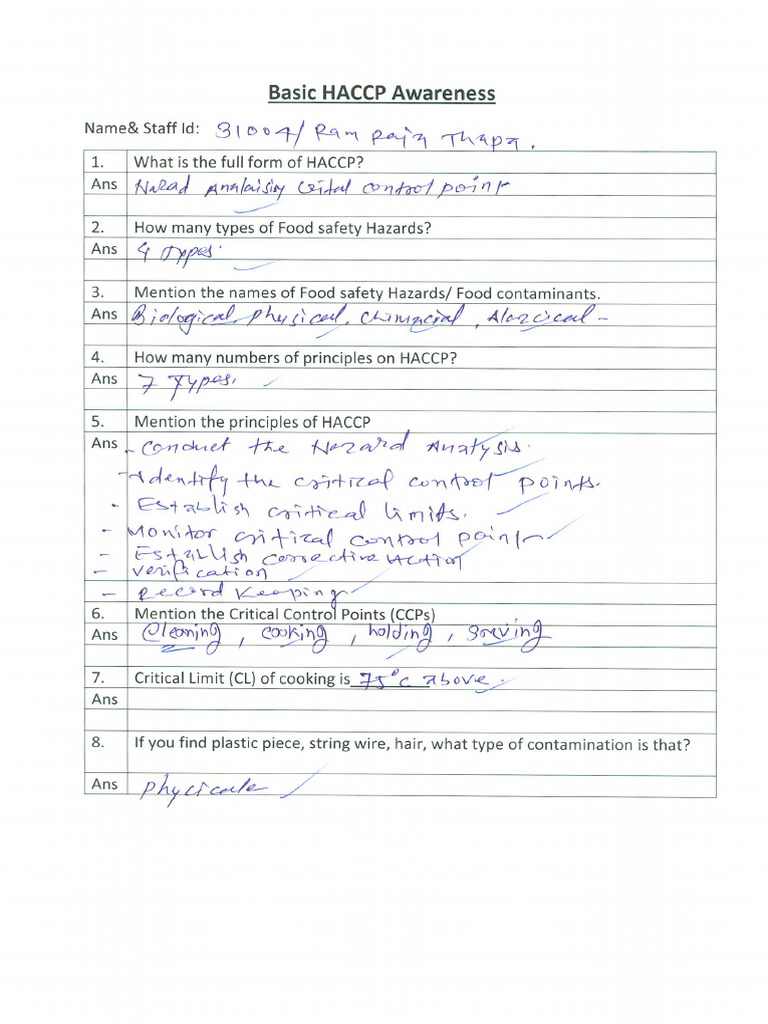 Basic HACCP Awareness
Name& Staff Id: 31004/ Ram Raja Thapa.
1. What is the full form of HACCP?
Ans Hazad Analaising Crital control point
2. How many types of Food safety Hazards?
Ans 4 Types.
3. Mention the names of Food safety Hazards/ Food contaminants.
Ans Biological, physical, Chimacial, Alargical -
4. How many numbers of principles on HACCP?
Ans 7 Types.
5. Mention the principles of HACCP
Ans - Conduct the Hazard Analysis.
- Identify the critical control points.
- Establish critical limits.
- Monitor critical control point
- Establish corrective Action
- Verification
- Record Keeping
6. Mention the Critical Control Points (CCPs)
Ans Cleaning, cooking, holding, Sarving
7. Critical Limit (CL) of cooking is 75°C above.
Ans
8. If you find plastic piece, string wire, hair, what type of contamination is that?
Ans phycicale